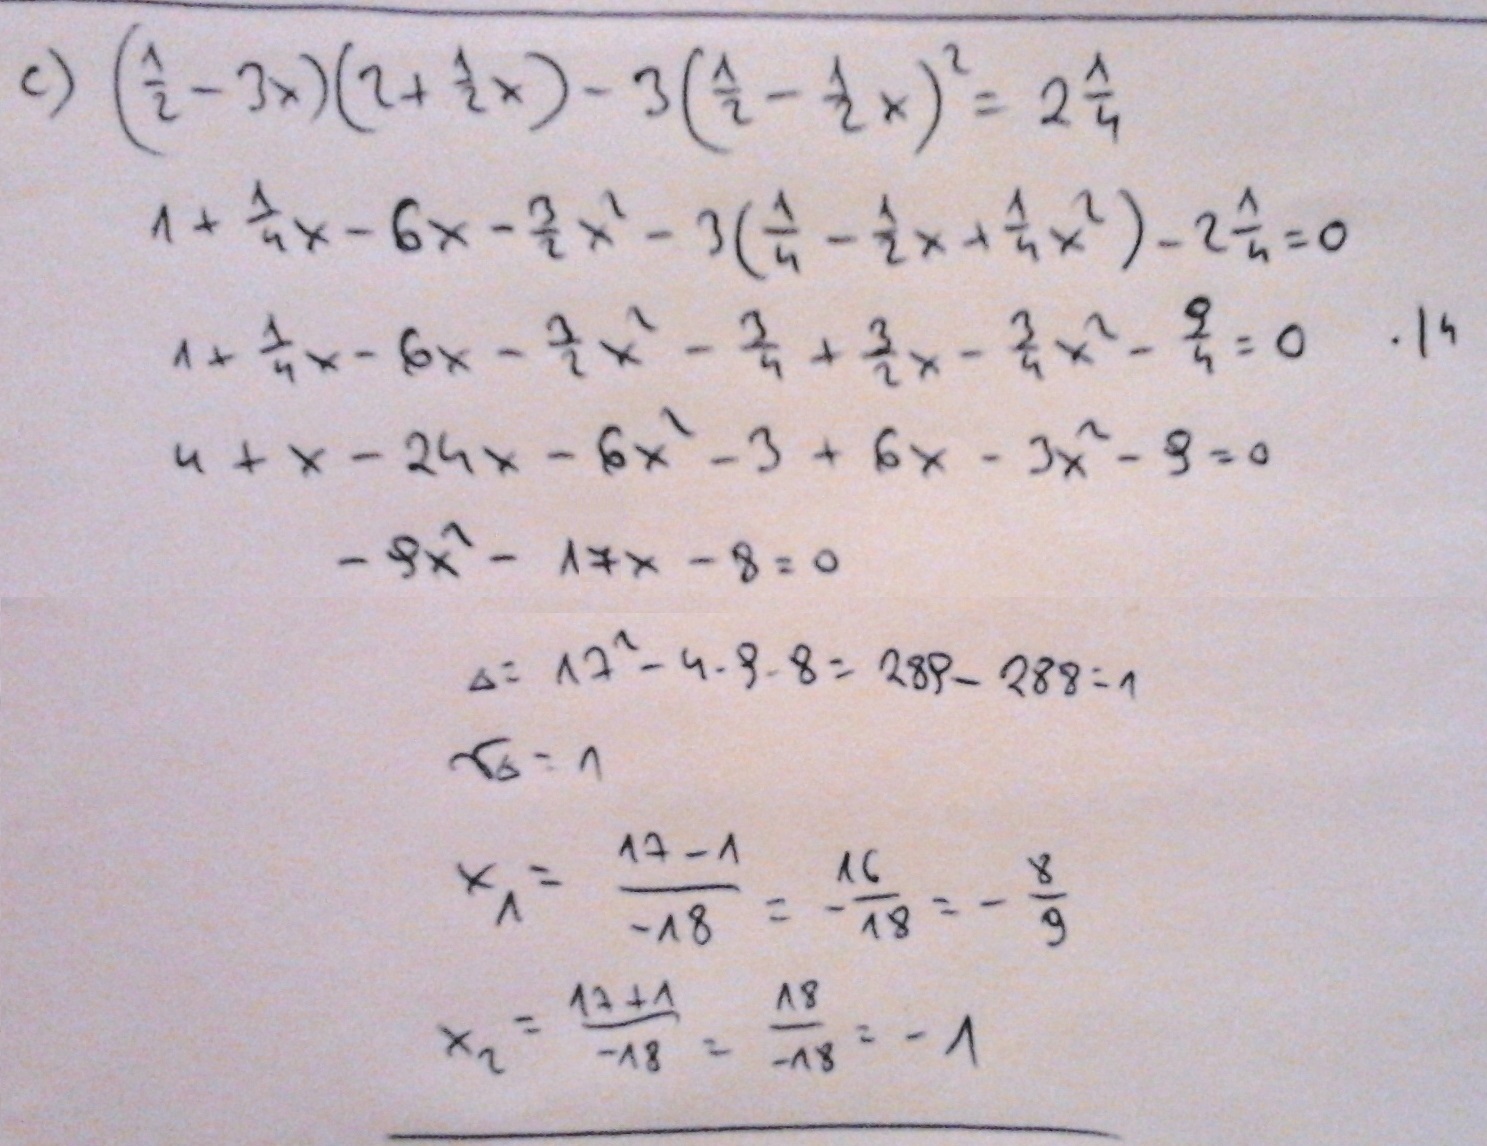 c) (1/2 - 3x)(2 + 1/2 x) - 3(1/2 - 1/2 x)² = 2 1/4
1 + 1/4 x - 6x - 3/2 x² - 3(1/4 - 1/2 x + 1/4 x²) - 2 1/4 = 0
1 + 1/4 x - 6x - 3/2 x² - 3/4 + 3/2 x - 3/4 x² - 9/4 = 0 ·|4
4 + x - 24x - 6x² - 3 + 6x - 3x² - 9 = 0
- 9x² - 17x - 8 = 0
Δ = 17² - 4·9·8 = 289 - 288 = 1
√Δ = 1
x₁ = 17 - 1 / -18 = - 16/18 = - 8/9
x₂ = 17 + 1 / -18 = 18 / -18 = - 1